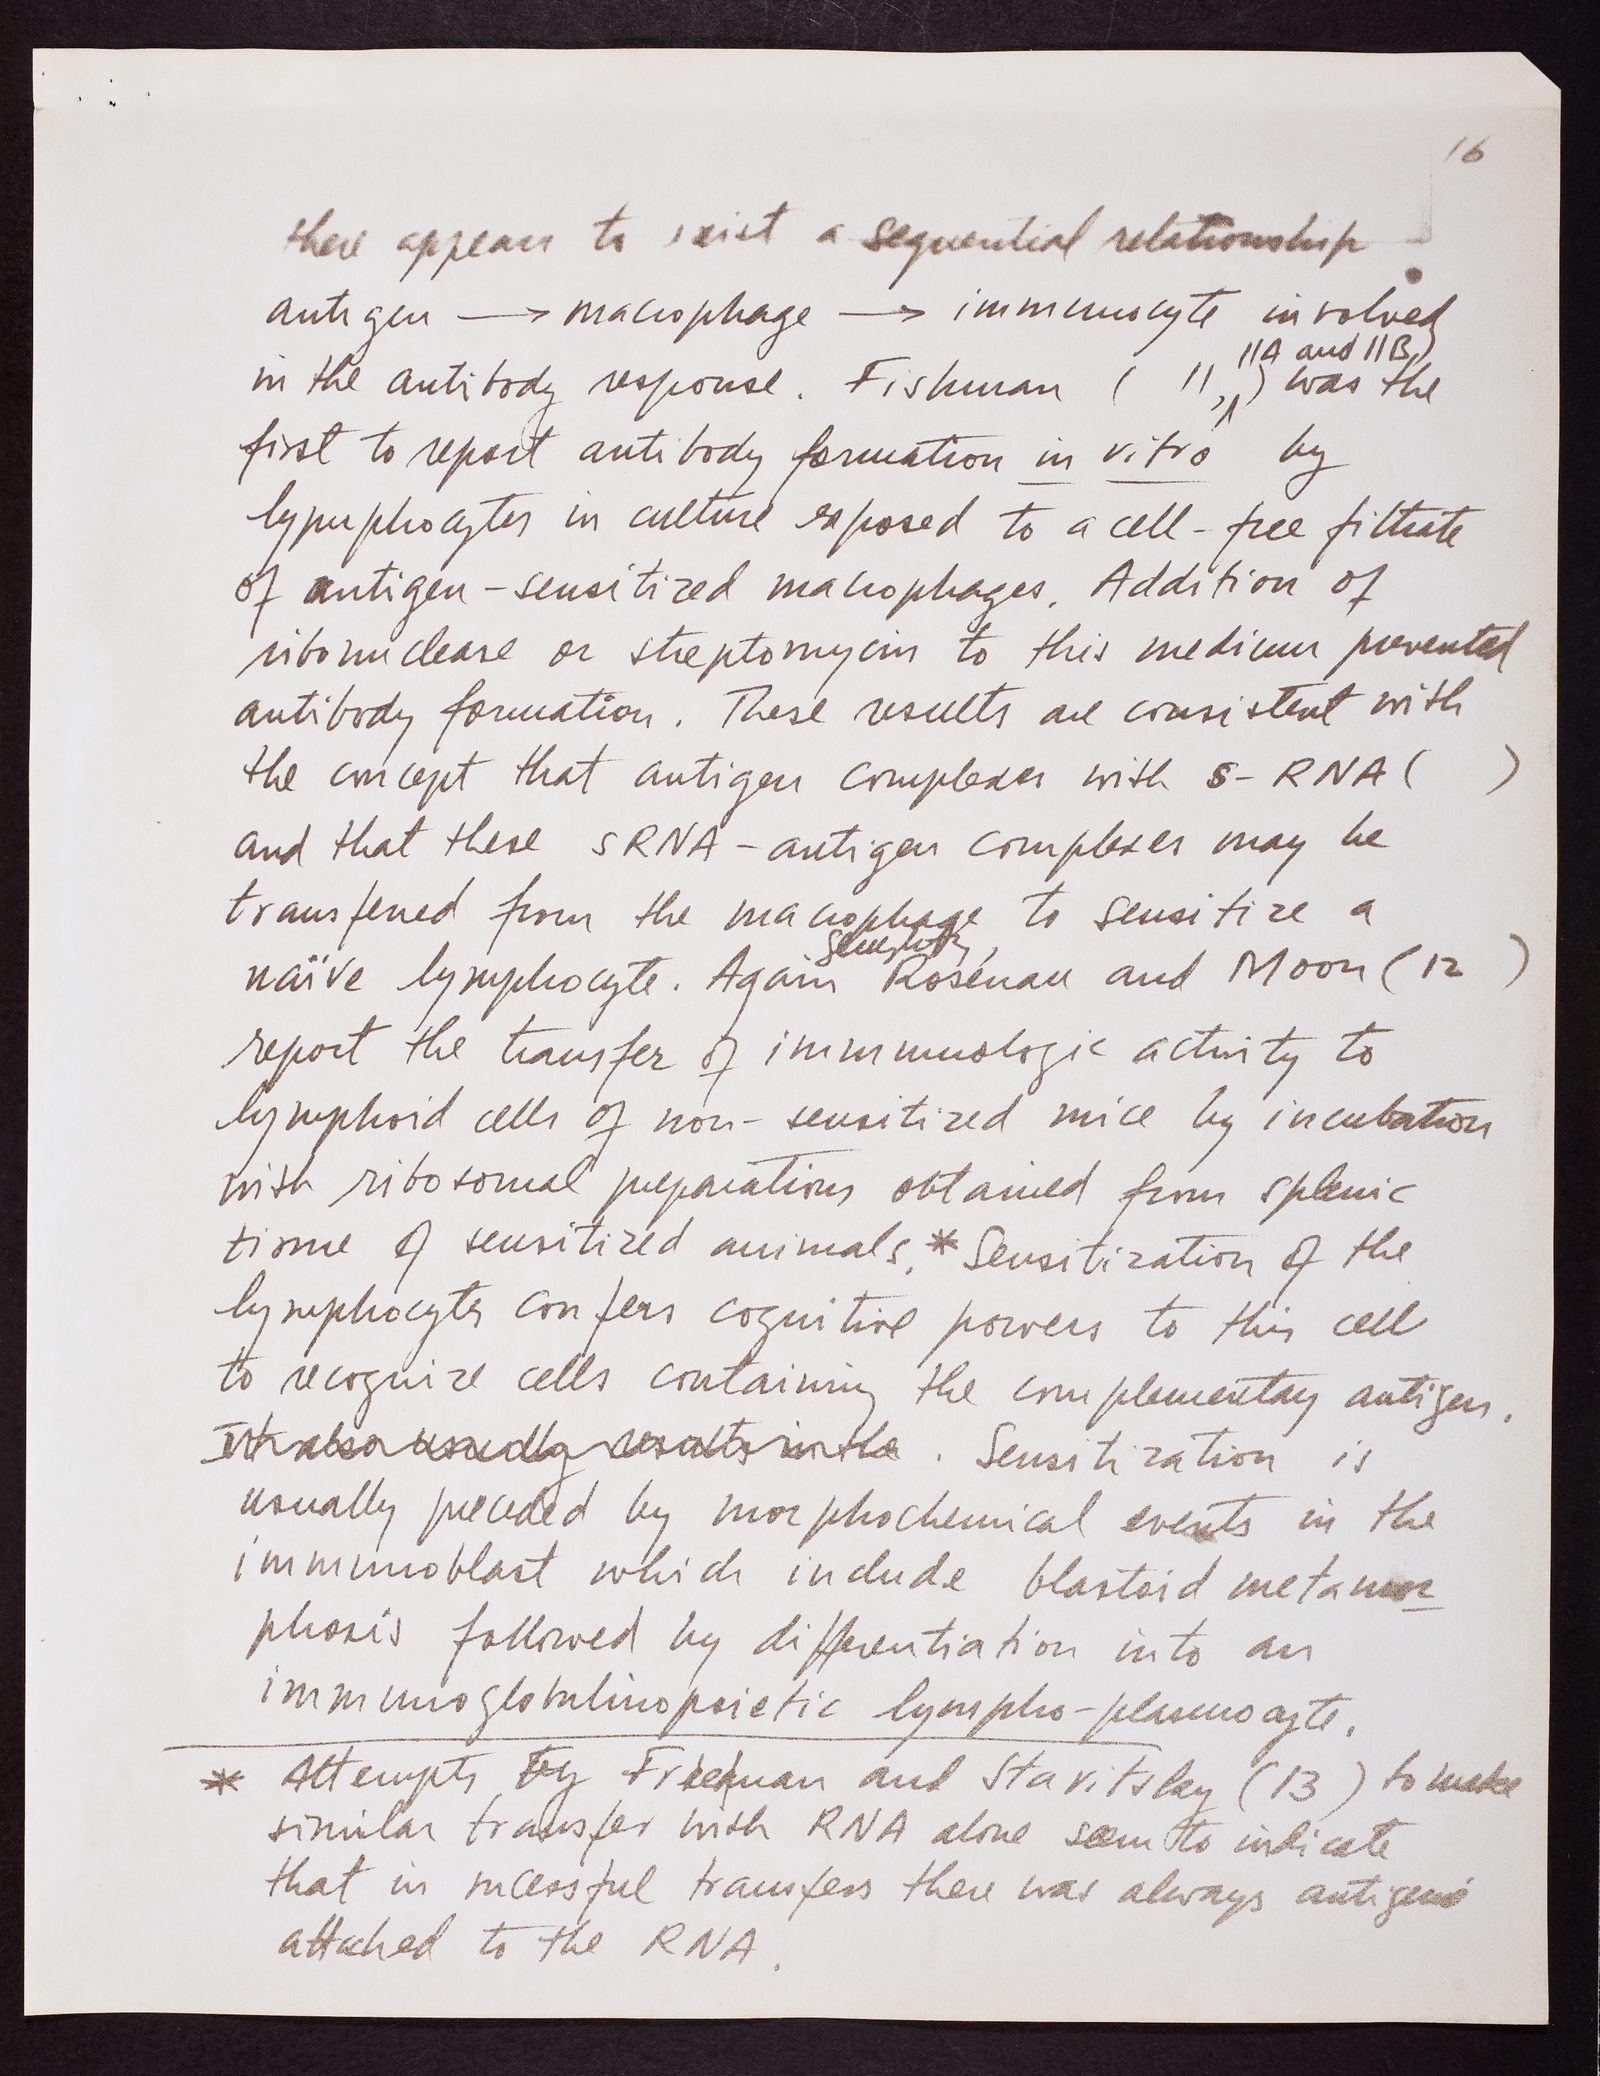 16
there appears to exist a sequential relationship
antigen → macrophage → immunocyte involved
in the antibody response. Fishman ( 11, 11A and 11B) was the
first to report antibody formation in vitro by
lymphocytes in culture exposed to a cell-free filtrate
of antigen-sensitized macrophages. Addition of
ribonuclease or streptomycin to this medium prevented
antibody formation. These results are consistent with
the concept that antigen complexes with s-RNA (    )
and that these sRNA-antigen complexes may be
transferred from the macrophage to sensitize a
naïve lymphocyte. Again Rosenau and Moon (12  )
report the transfer of immunologic activity to
lymphoid cells of non-sensitized mice by incubation
with ribosomal preparations obtained from splenic
tissue of sensitized animals.* Sensitization of the
lymphocytes confers cognitive powers to this cell
to recognize cells containing the complementary antigen.
It also usually results in the . Sensitization is
usually preceded by morphochemical events in the
immunoblast which include blastoid metamor
phosis followed by differentiation into an
immunoglobulinopoietic lympho-plasmocyte.
* Attempts by Friedman and Stavitsky (13 ) to make
similar transfer with RNA alone seem to indicate
that in sucessful transfers there was always antigen
attached to the RNA.